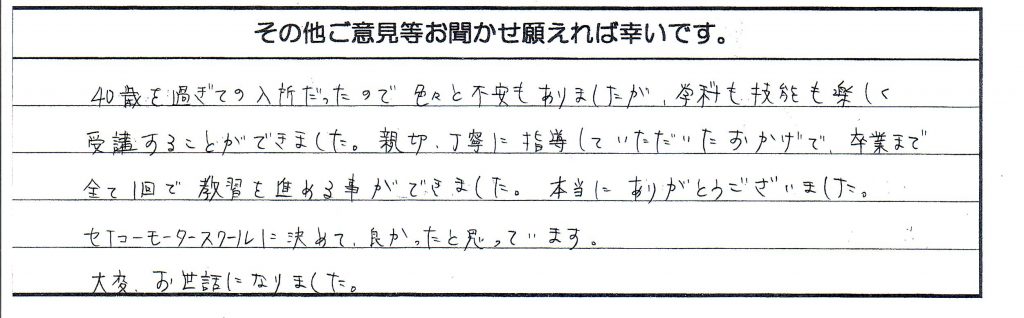 その他ご意見等お聞かせ願えれば幸いです。
40歳を過ぎての入所だったので色々と不安もありましたが、学科も技能も楽しく
受講することができました。親切、丁寧に指導していただいたおかげで、卒業まで
全て1回で教習を進める事ができました。本当にありがとうございました。
セイコーモータースクールに決めて、良かったと思っています。
大変、お世話になりました。